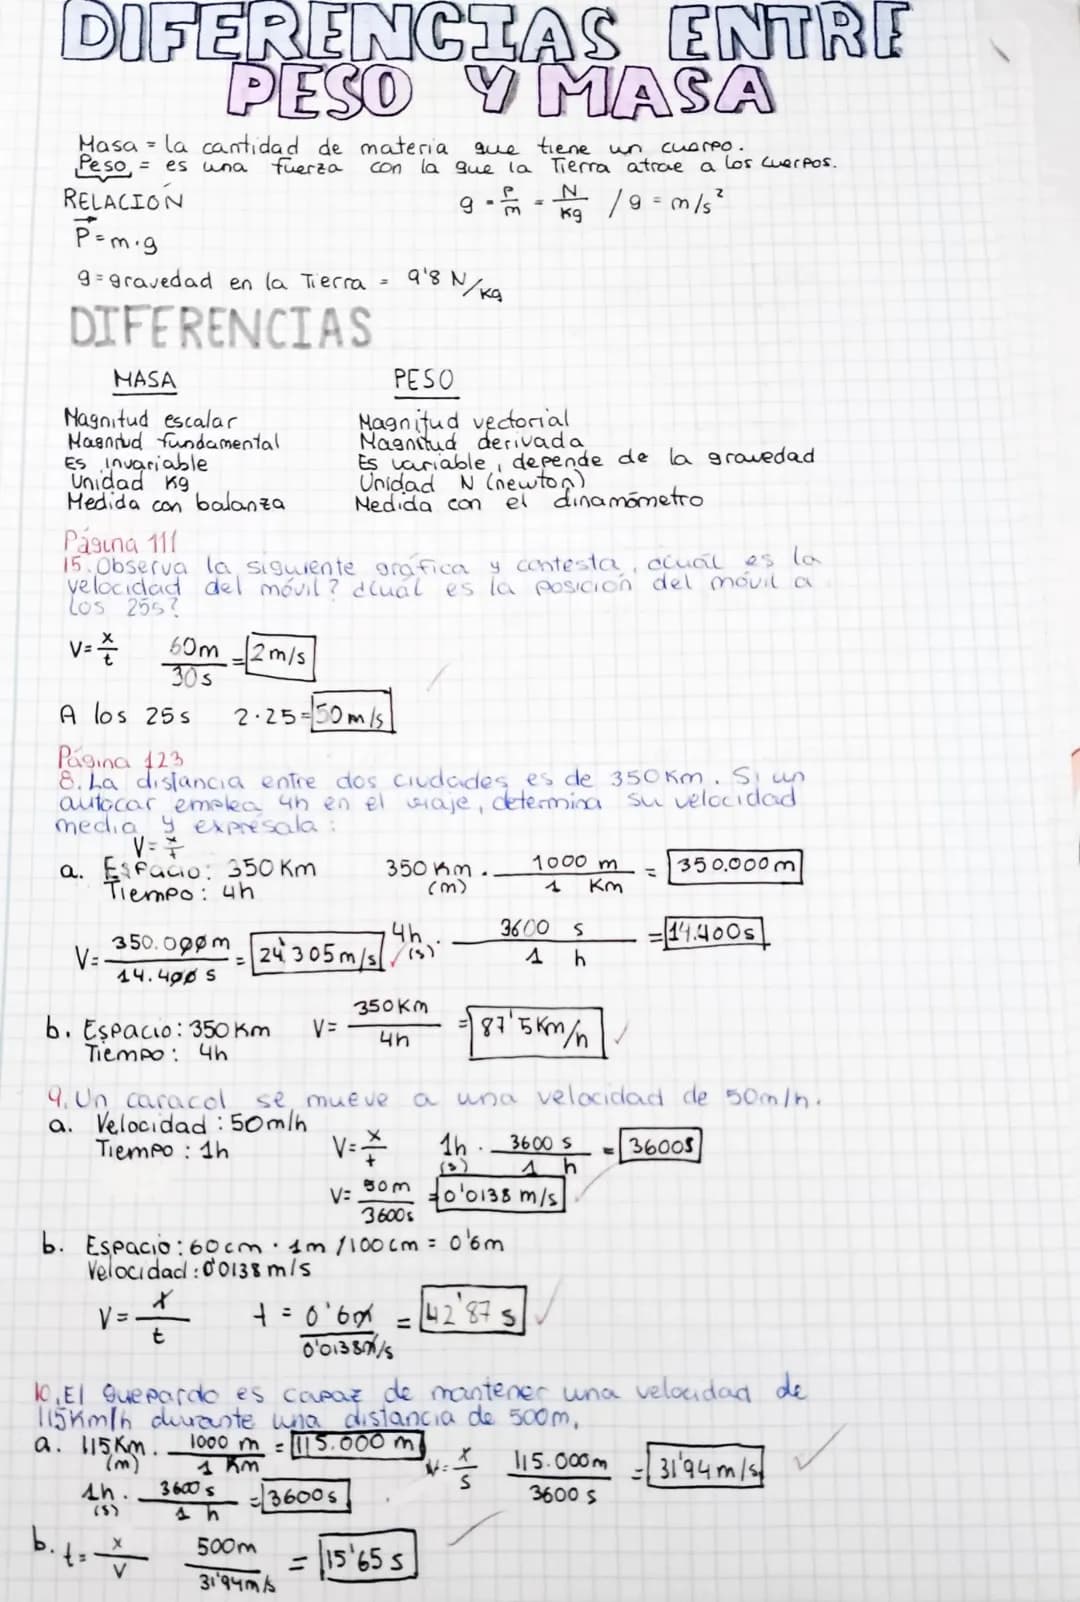 DIFERENCIAS ENTRE
PESO Y MASA
Masa = la cantidad de materia que tiene un cuerpo.
Peso = es una fuerza con la que la Tierra atrae a los cuerpos.
RELACIÓN g = P/m = N/Kg / g = m/s²
P = m·g
g = gravedad en la Tierra = 9'8 N/Kg
DIFERENCIAS
MASA PESO
Magnitud escalar Magnitud vectorial
Magnitud fundamental Magnitud derivada
Es invariable Es variable, depende de la gravedad
Unidad Kg Unidad N (newton)
Medida con balanza Medida con el dinamómetro
Página 111
15. Observa la siguiente gráfica y contesta, ¿cuál es la
velocidad del móvil? ¿Cuál es la posición del móvil a
los 25s?
V = x/t 60m/30s = 2m/s
A los 25s 2·25 = 50m/s
Página 123
8. La distancia entre dos ciudades es de 350Km. Si un
autocar emplea 4h en el viaje, determina su velocidad
media y exprésala:
V = x/t
a. Espacio: 350Km 350Km (m) · 1000 m/1 Km = 350.000m
Tiempo: 4h
V = 350.000m/14.400s = 24'305m/s 4h (s) · 3600 s/1 h = 14.400s
b. Espacio: 350Km V = 350Km/4h = 87'5Km/h
Tiempo: 4h
9. Un caracol se mueve a una velocidad de 50m/h.
a. Velocidad: 50m/h
Tiempo: 1h V = x/t 1h (s) · 3600 s/1 h = 3600s
V = 50m/3600s = 0'0138 m/s
b. Espacio: 60cm · 1m/100cm = 0'6m
Velocidad: 0'0138 m/s
V = x/t t = 0'6m/0'0138m/s = 42'87 s
10. El guepardo es capaz de mantener una velocidad de
115Km/h durante una distancia de 500m.
a. 115Km (m) · 1000 m/1 Km = 115.000 m V = x/s 115.000m/3600 s = 31'94m/s
1h (s) · 3600 s/1 h = 3600s
b. t = x/v 500m/31'94m/s = 15'65 s